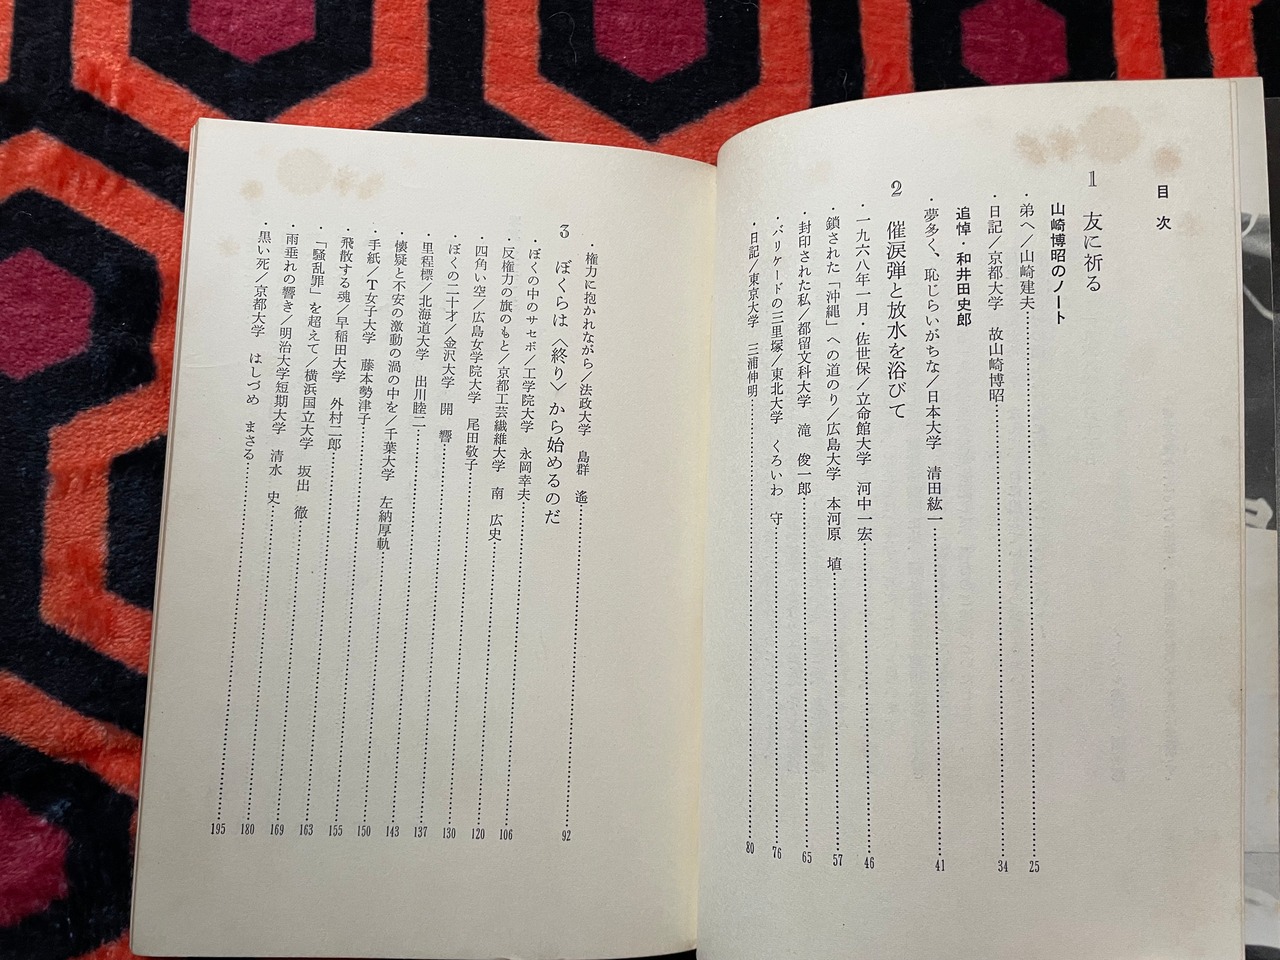 目次
1 友に祈る
山崎博昭のノート
・弟へ／山崎建夫……25
・日記／京都大学 故山崎博昭……34
追悼・和井田史郎
・夢多く、恥じらいがちな／日本大学 清田紘一……41
2 催涙弾と放水を浴びて
・一九六八年一月・佐世保／立命館大学 河中一宏……46
・鎖された「沖縄」への道のり／広島大学 本河原 埴……57
・封印された私／都留文科大学 滝 俊一郎……65
・バリケードの三里塚／東北大学 くろいわ 守……76
・日記／東京大学 三浦伸明……80
・権力に抱かれながら／法政大学 島群 遙……92
3 ぼくらは〈終り〉から始めるのだ
・ぼくの中のサセボ／工学院大学 永岡幸夫……106
・反権力の旗のもと／京都工芸繊維大学 南 広史……120
・四角い空／広島女学院大学 尾田敬子……130
・ぼくの二十才／金沢大学 開 響……137
・里程標／北海道大学 出川睦二……143
・懐疑と不安の激動の渦の中を／千葉大学 左納厚軌……150
・手紙／T女子大学 藤本勢津子……155
・飛散する魂／早稲田大学 外村二郎……163
・「騒乱罪」を超えて／横浜国立大学 坂出 徹……169
・雨垂れの響き／明治大学短期大学 清水 史……180
・黒い死／京都大学 はしづめ まさる……195